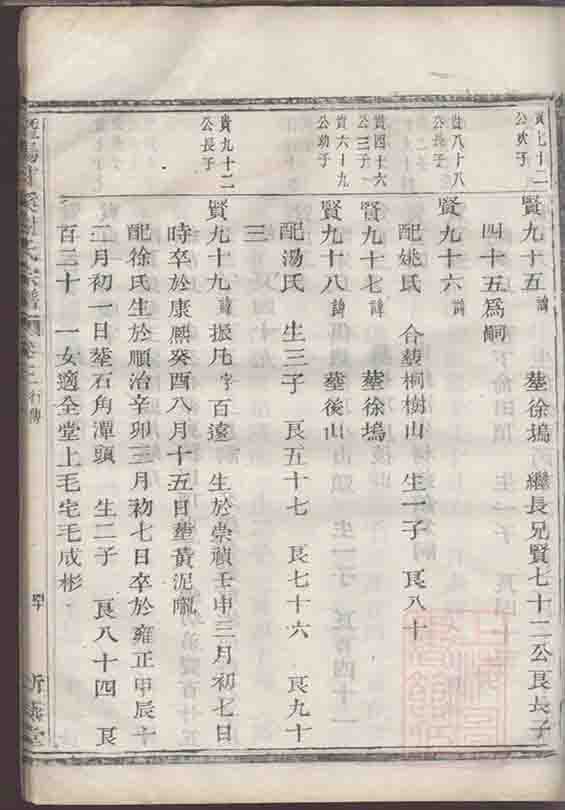 賢九十五 諱 塟徐塢 繼長兄賢七十二公良長子
四十五為嗣
公長子
賢九十六 諱
配姚氏 合塟桐樹山 生一子 良八十
貴四十六
公三子
賢九十七 諱 塟徐塢
貴六十九
公幼子
賢九十八 諱 塟後山
配湯氏 生三子 良五十七 良七十六 良九十
三
貴九十二
公長子
賢九十九 諱 振凡 字 百遠 生於崇禎壬申三月初七日
時卒於康熙癸酉八月十五日塟黃泥
配徐氏生於順治辛卯三月初七日卒於雍正甲辰十
二月初一日塟石角潭頭 生二子 良八十四 良
百三十 一女適全堂上毛宅毛成彬
氏宗譜 行傳